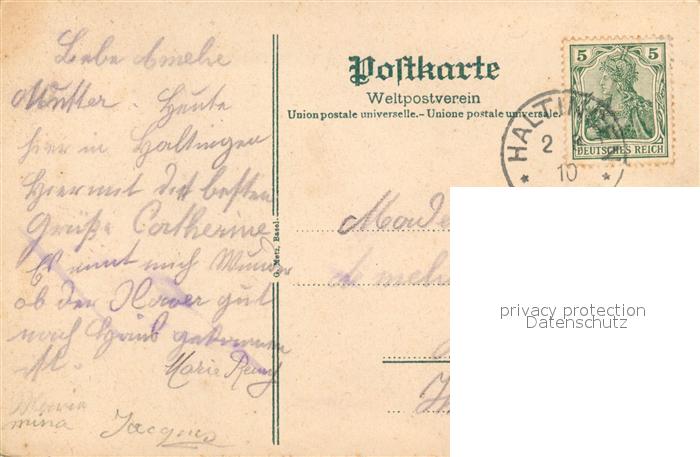 Liebe Amelie
Mutter. Heute
hier in Haltingen
Hiermit die besten
Grüße Catherine
Es nimt mich Wunder
ob der Xaver gut
nach Haus gekommen
ist.
Marie
Maria
mina
Jacques
Postkarte
Weltpostverein
Union postale universelle.– Unione postale universale.
G. Metz, Basel.
5 5
DEUTSCHES REICH
HALTINGEN
2
10
Made
privacy protection
Datenschutz